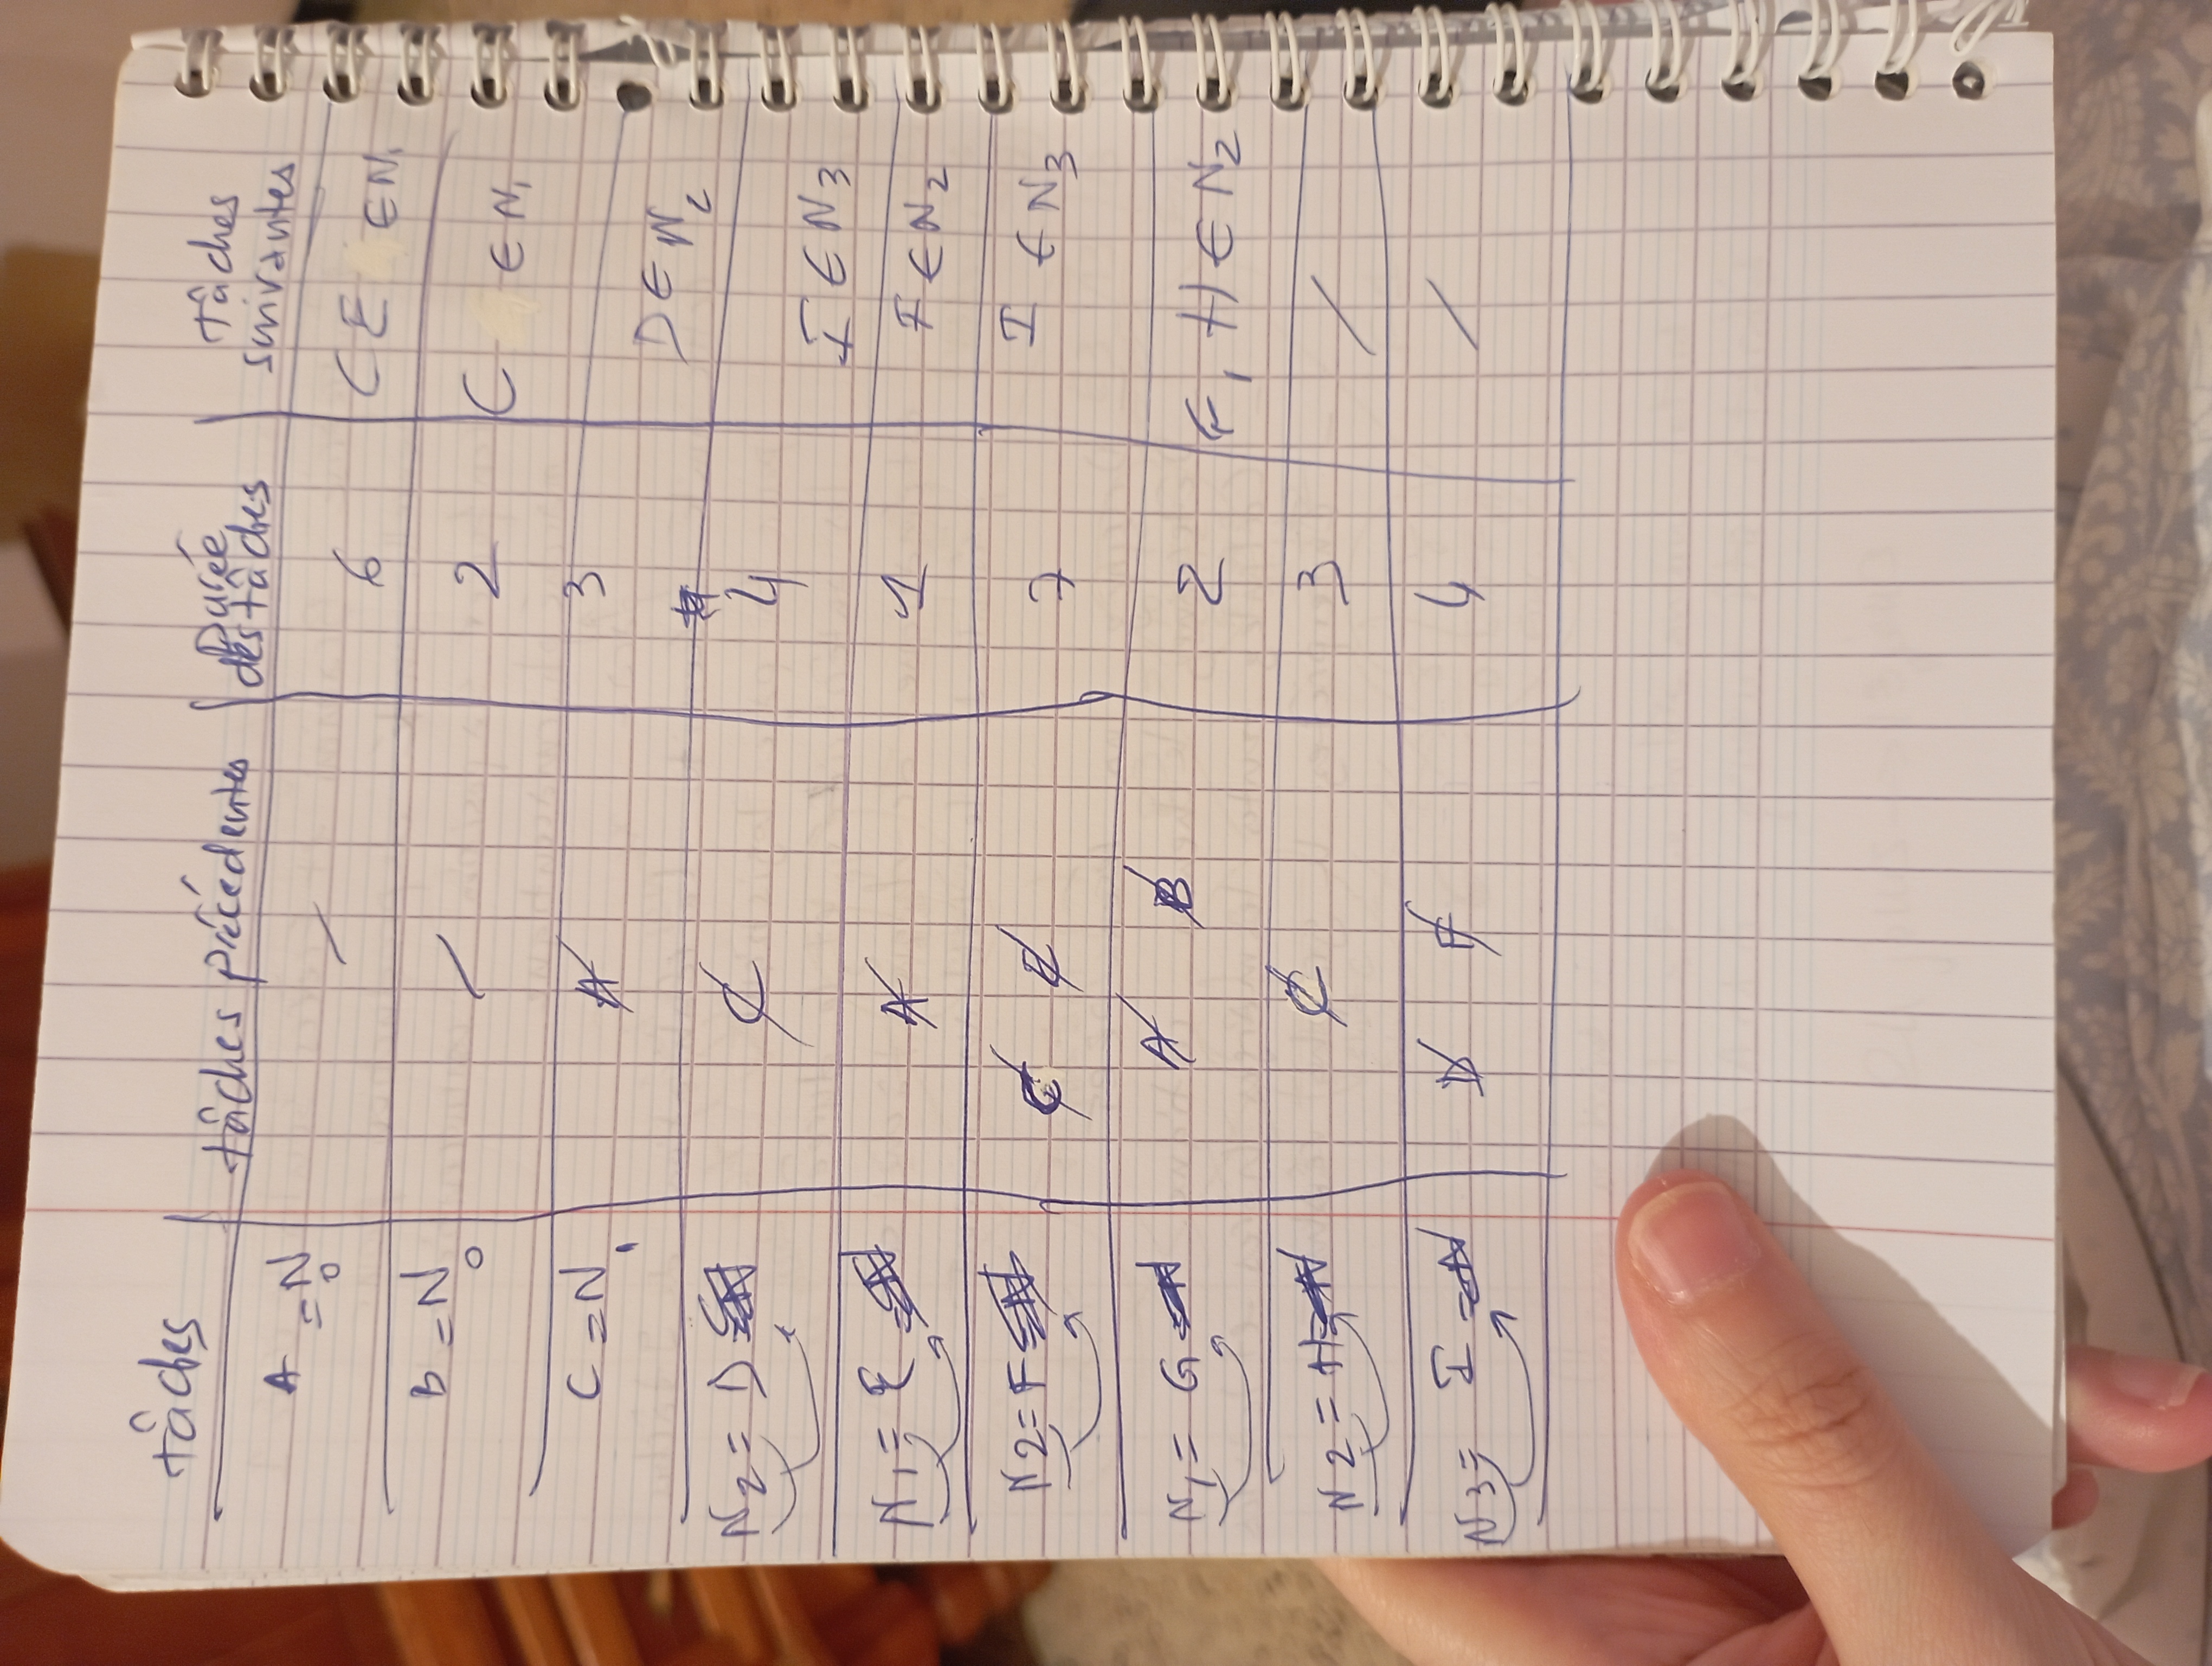 tâches tâches précédentes Durée des tâches tâches suivantes
A = N0 / 6 C E ∈ N1
B = N0 / 2 C ∈ N1
C = N1 A 3 D ∈ N2
N2 = D C 4 I ∈ N3
N1 = E A 1 F ∈ N2
N2 = F E 7 I ∈ N3
N1 = G A B 2 F, H ∈ N2
N2 = H 3 /
N3 = I D F 4 /